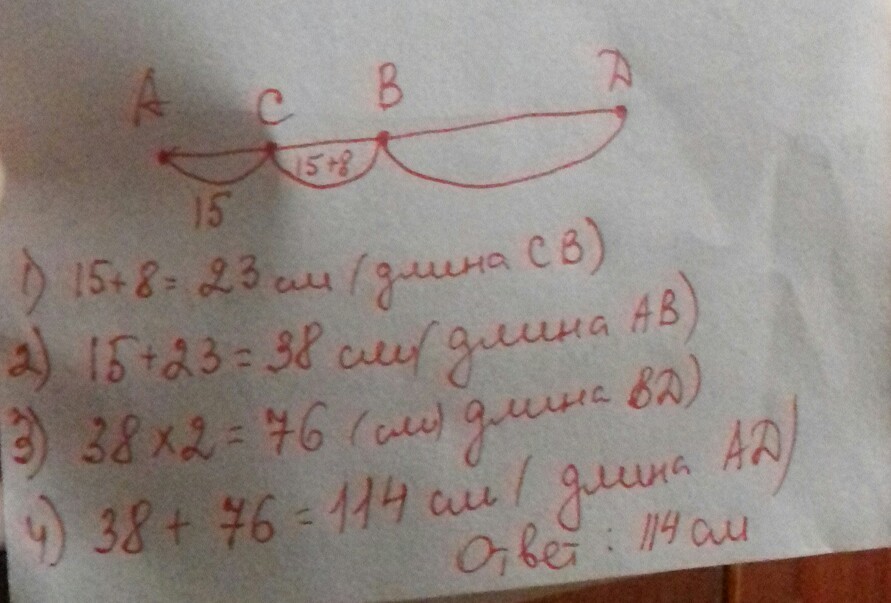 A C B D
15 15+8
1) 15+8 = 23 см (длина CB)
2) 15+23 = 38 см (длина AB)
3) 38×2 = 76 (см) длина BD)
4) 38 + 76 = 114 см ( длина AD)
Ответ : 114 см